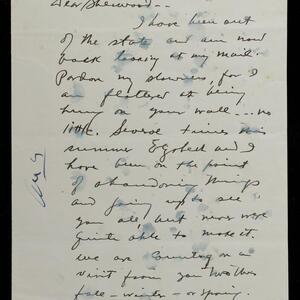 Dear Sherwood --
I have been out
of the state and am now
back looking at my mail.
Pardon my slowness, for I
am flattered at being
hung on your wall -- no
little. Several times this
summer Egobert and I
have been on the point
of abandoning things
and going up to see
you all, but never were
quite able to make it.
We are counting on a
visit from you
fall - winter - or spring.